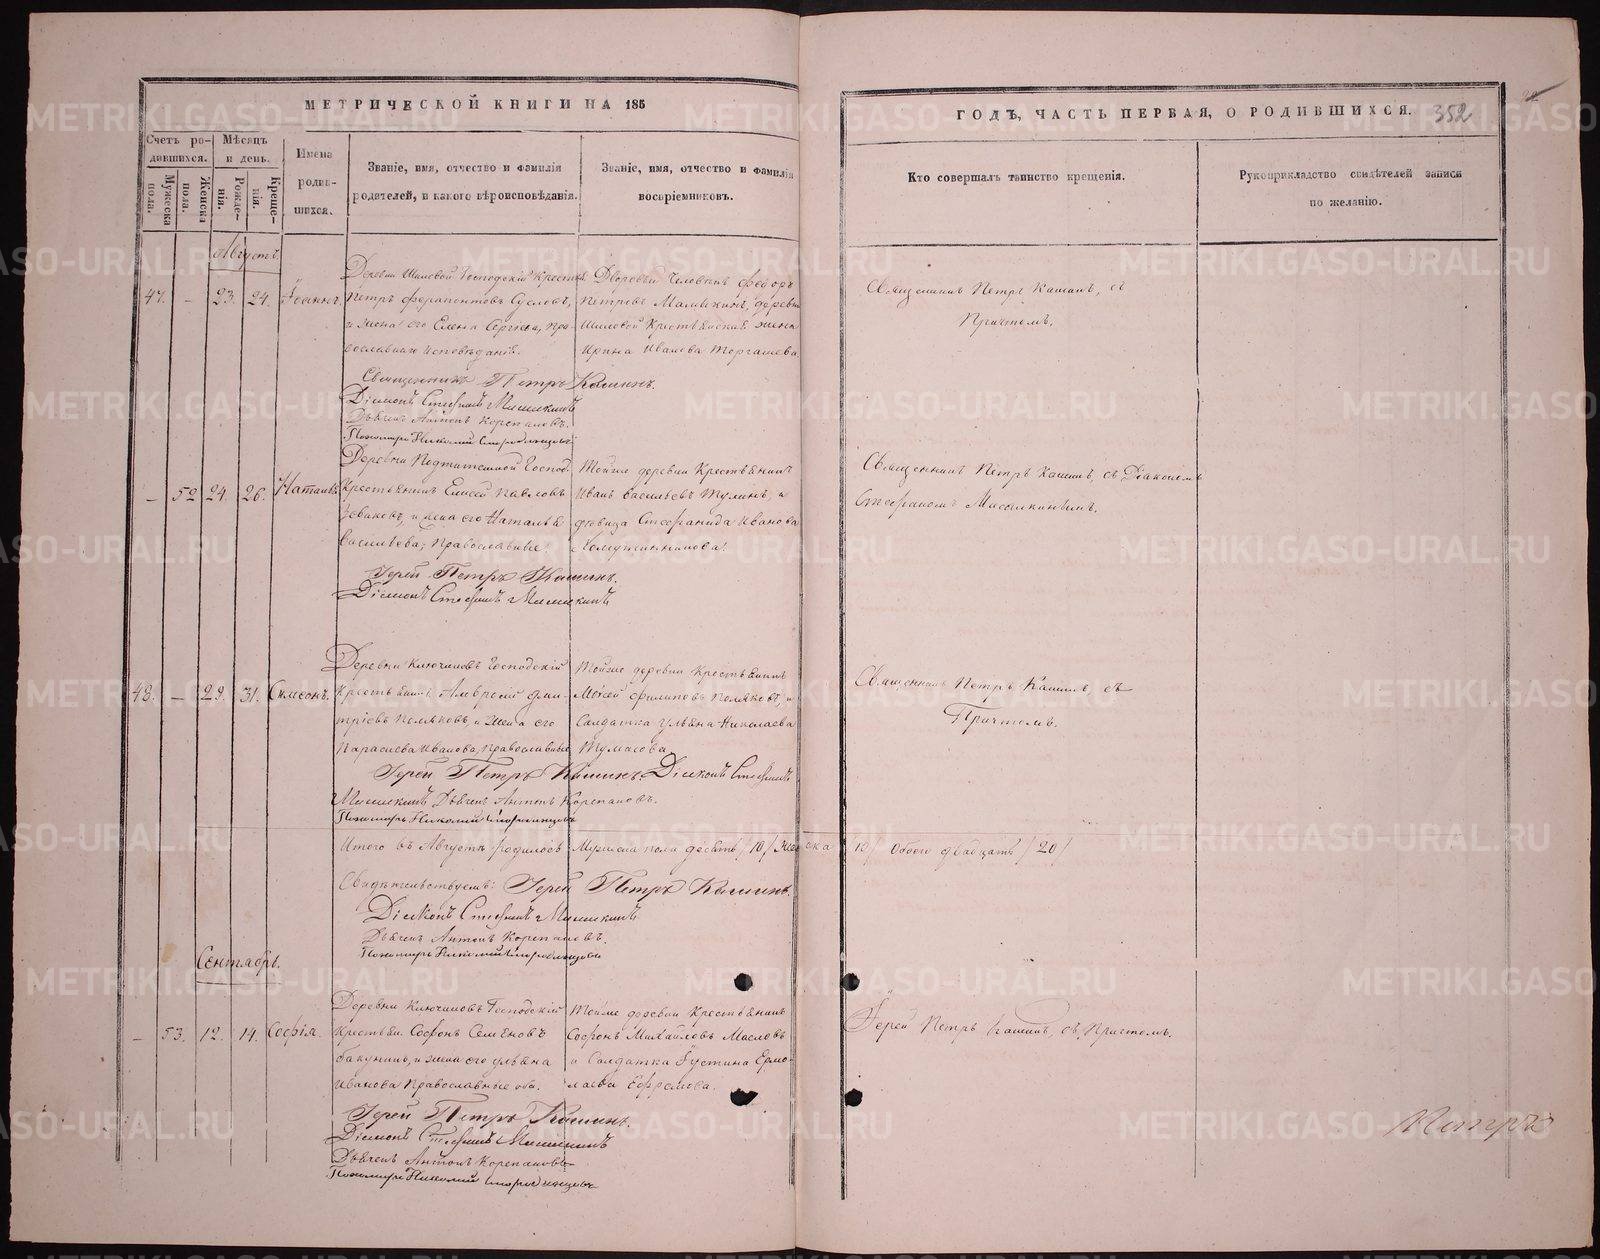 МЕТРИЧЕСКОЙ КНИГИ НА 185
ГОДЪ, ЧАСТЬ ПЕРВАЯ, О РОДИВШИХСЯ. 352
Счетъ ро-
дившихся.
Мужеска
пола.
Женска
пола.
Мѣсяцъ
и день.
Рожде-
нія.
Креще-
нія.
Имена
родив-
шихся.
Званіе, имя, отчество и фамилія
родителей, и какого вѣроисповѣданія.
Званіе, имя, отчество и фамилія
воспріемниковъ.
Кто совершалъ таинство крещенія.
Рукоприкладство свидѣтелей записи
по желанію.
Августъ.
47. – 23. 24. Іоаннъ.
Деревни Шиловой Господскій
Петръ Ферапонтовъ Сусловъ,
и жена его Елена Сергіева, Пра-
вославнаго исповѣданія.
Дворовый Человѣкъ Феодоръ
Петровъ Малышкинъ, деревни
Шиловой Крестьянская жена
Ирина Иванова Торгашева.
Священникъ Петръ Кашинъ, съ
Причтомъ.
Священникъ Петръ Кашинъ.
Діаконъ Стефанъ
Дьячекъ Антонъ Корепановъ.
Пономарь Николай
– 52 24. 26. Наталія
Деревни Господ.
Крестьянинъ Елисей Павловъ
и жена его Наталья
Васильева, Православные.
Тойже деревни Крестьянинъ
Иванъ Васильевъ Тулинъ, и
дѣвица Стефанида Иванова
Священникъ Петръ Кашинъ, съ Діакономъ
Стефаномъ
Іерей Петръ Кашинъ.
Діаконъ Стефанъ
48. – 29. 31. Симеонъ.
Деревни Ключиковъ Господскій
Крестьянинъ Амвросій Дми-
тріевъ Поляковъ, и жена его
Параскева Иванова, Православные
Тойже деревни Крестьянинъ
Мосей Филиповъ Поляковъ, и
Солдатка Ульяна Николаева
Тумасова.
Священникъ Петръ Кашинъ, съ
Причтомъ.
Іерей Петръ Кашинъ. Діаконъ Стефанъ
Дьячекъ Антонъ Корепановъ.
Пономарь Николай
Итого въ Августѣ родилось Мужеска пола десять /10/ Женска 10/ Обоего двадцать /20/
Свидѣтельствуемъ: Іерей Петръ Кашинъ.
Діаконъ Стефанъ
Дьячекъ Антонъ Корепановъ.
Пономарь Николай
Сентябрь.
– 53. 12. 14. Софія.
Деревни Ключиковъ Господскій
Крестьян. Софонъ Семеновъ
Бакунинъ, и жена его Ульяна
Иванова Православные оба.
Тойже деревни Крестьянинъ
Софонъ Михайловъ Масловъ
и Солдатка Іустина Ермо-
лаева Ефремова.
Іерей Петръ Кашинъ, съ Причтомъ.
Іерей Петръ Кашинъ.
Діаконъ Стефанъ
Дьячекъ Антонъ Корепановъ
Пономарь Николай
Петръ
METRIKI.GASO-URAL.RU